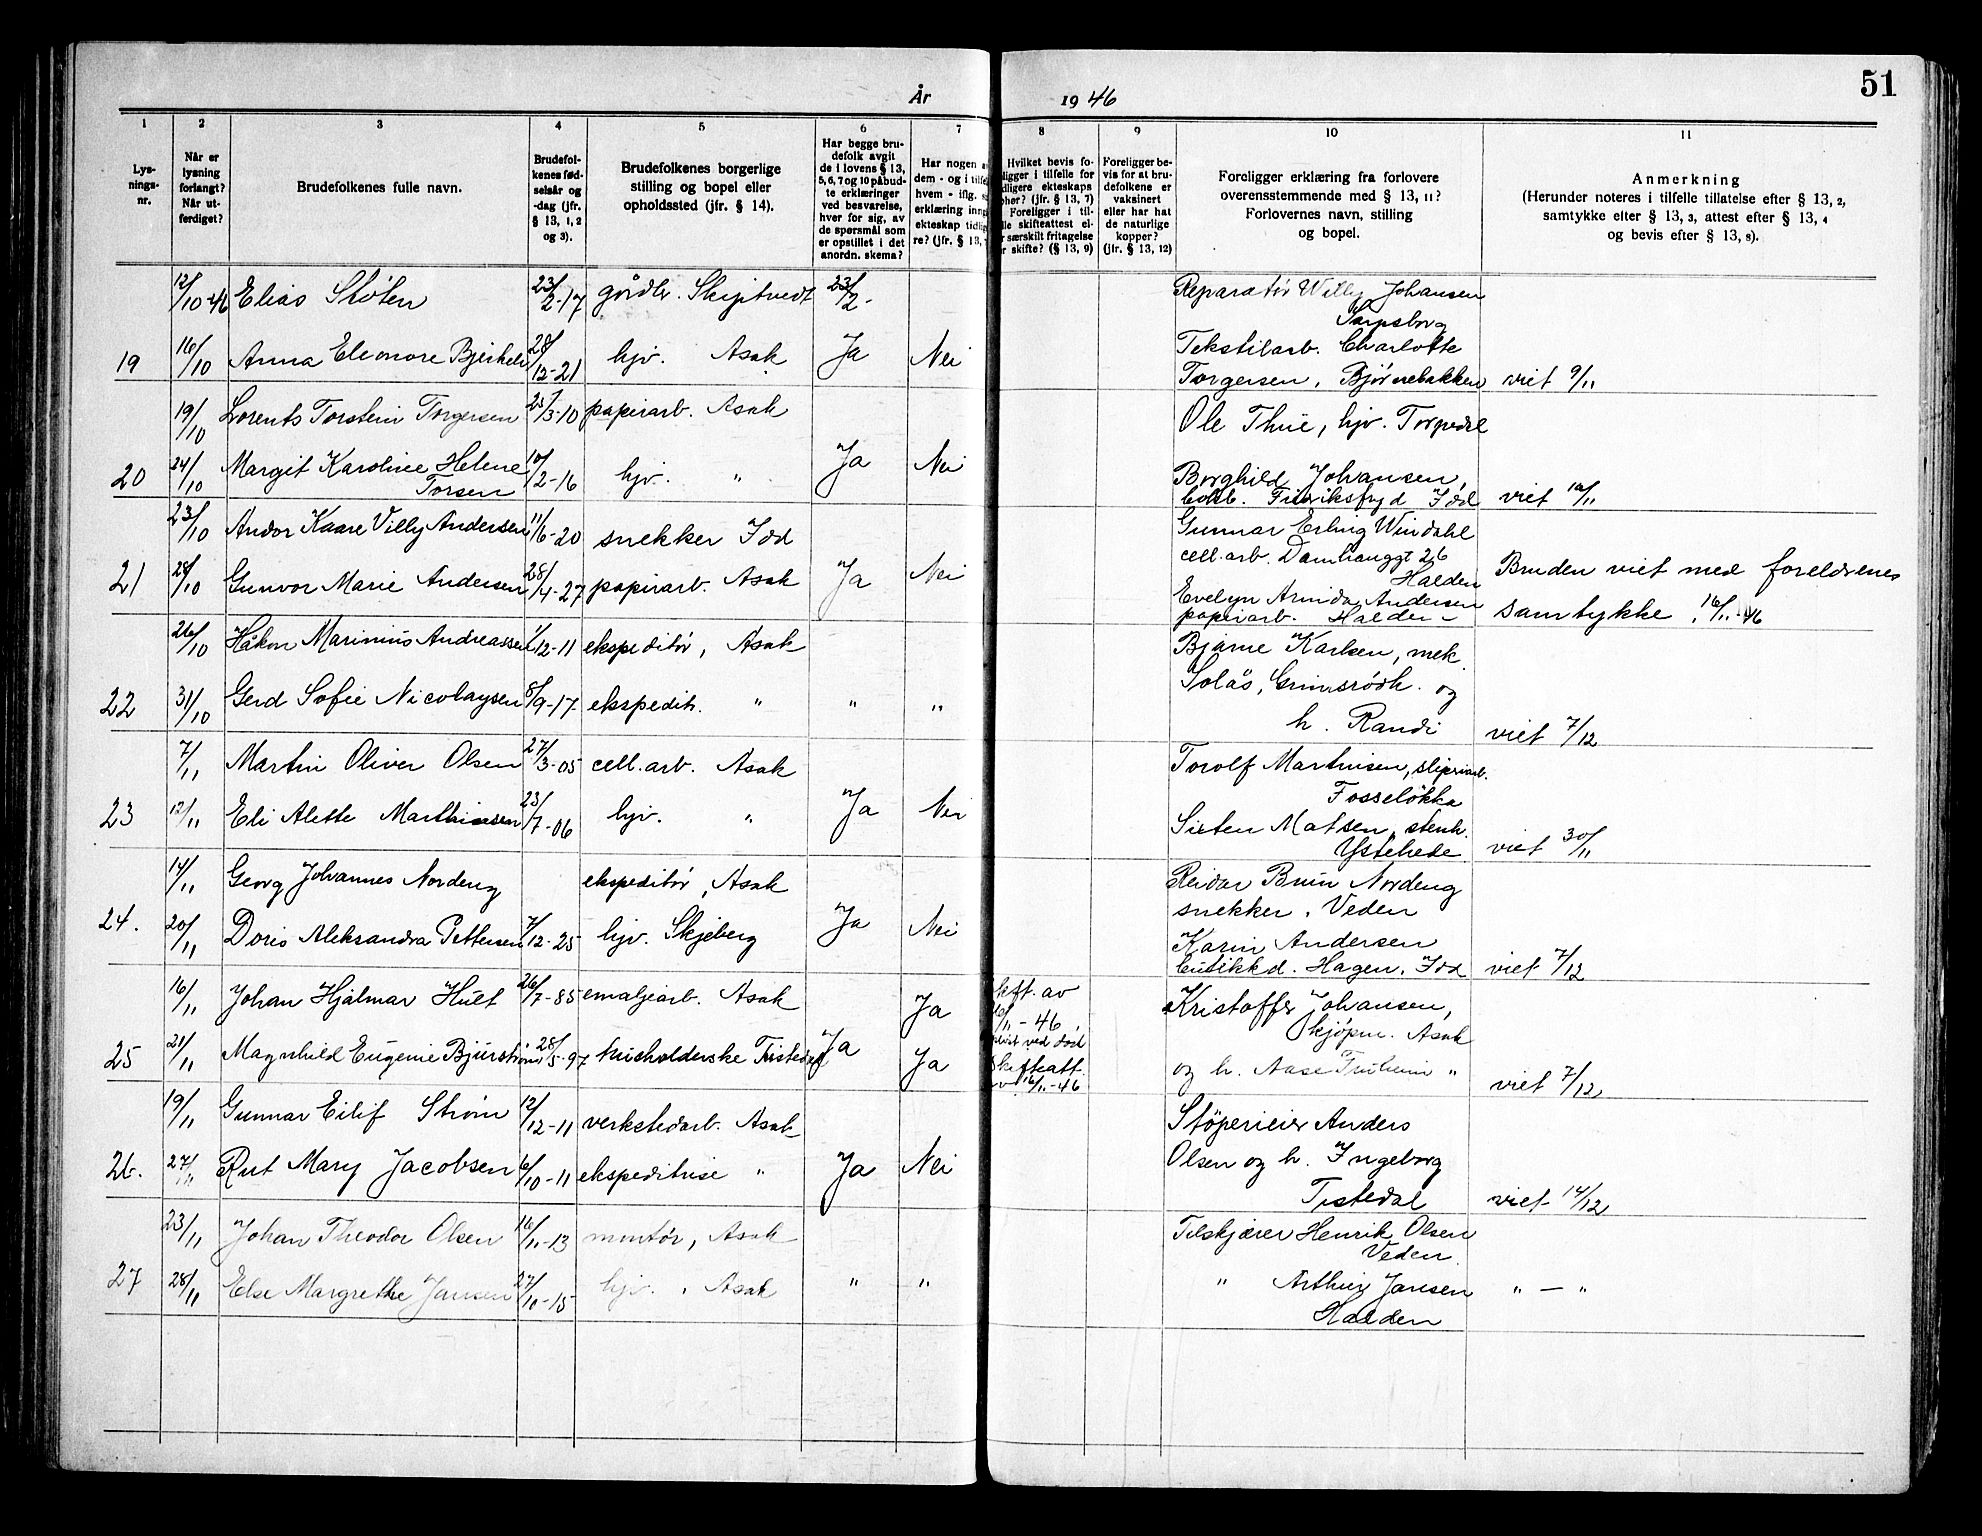 51
År 1946
1 2 3 4 5 6 7 8 9 10 11
Lys-
nings-
nr.
Når er
lysning
forlangt?
Når ut-
ferdiget?
Brudefolkenes fulle navn.
Brudefol-
kenes fød-
selsår og
-dag (jfr.
§ 13, 1, 2
og 3).
Brudefolkenes borgerlige
stilling og bopel eller
opholdssted (jfr. § 14).
Har begge bru-
defolk avgit
de i lovens § 13,
5, 6, 7 og 10 påbud-
te erklæringer
ved besvarelse,
hver for sig, av
de spørsmål som
er opstillet i det
anordn. skema?
Har nogen a
dem - og i tilfel
hvem - iflg. s
erklæring inng
ekteskap tidlig
re? (jfr. § 13,
Hvilket bevis fo-
ligger i tilfelle for
dligere ekteskaps
pher? (jfr. § 13, 7)
Foreligger i til-
lle skifteattest el-
r særskilt fritagelse
r skifte? (§ 13, 9)
Foreligger be-
vis for at bru-
defolkene er
vaksinert
eller har hat
de naturlige
kopper?
(jfr. § 13, 12)
Foreligger erklæring fra forlovere
overensstemmende med § 13, 11?
Forlovernes navn, stilling
og bopel.
Anmerkning
(Herunder noteres i tilfelle tillatelse efter § 13, 2,
samtykke efter § 13, 3, attest efter § 13, 4
og bevis efter § 13, 8).
12/10-46 Elias Sløten 23/2-17 gårdbr. Skiptvedt 23/2- Reparatør Willy Johansen
Sarpsborg
19 16/10 Anna Eleonore Bjerkeli 28/12-21 hjv. Asak Ja Nei Tekstilarb. Charlotte
Torgersen, Bjørnebakken viet 9/11
19/10 Lorents Torstein Torgersen 25/3-10 papirarb. Asak Ole Thue, hjv. Torpedal
20 24/10 Margit Karoline Helene 10/2-16 hjv. " Ja Nei Borghild Johansen,
Torsen Fredriksfryd Idd viet 10/11
23/10 Andor Kaare Villy Andersen 11/6-20 snekker Idd Gunnar Erling Windahl
cell.arb. Damhauggt 26
Halden
21 28/10 Gunvor Marie Andersen 28/4-27 papirarb. Asak Ja Nei Evelyn Arinda Andersen Bruden viet med foreldrenes
papirarb. Halden samtykke, 16/11-46
26/10 Håkon Marinius Andreassen 1/12-11 ekspeditør, Asak Bjarne Karlsen, mek.
22 31/10 Gerd Sofie Nicolaysen 8/9-17 ekspeditr. " " " Solås, Grimsrødh. og
h. Randi viet 7/12
7/11 Martin Oliver Olsen 27/3-05 cell.arb. Asak Torolf Martinsen, sliperiarb.
Fosseløkka
23 12/11 Eli Alette Marthinsen 23/7-06 hjv. " Ja Nei Sisten Matsen, stenh.
Ystehede viet 30/11
14/11 Georg Johannes Nordeng ekspeditør, Asak Reidar Bruun Nordeng
snekker, Veden
24. 20/11 Doris Aleksandra Pettersen 7/12-25 hjv. Skjeberg Ja Nei Karin Andersen
butikkd. Hagen, Idd viet 7/12
16/11 Johan Hjalmar Hult 26/7-85 emaljearb. Asak Ja Kristoffer Johansen,
kjøpm. Asak
25 21/11 Magnhild Eugenie Bjurstrøm 28/5-97 husholderske Tistedal Ja Ja skifteatt. 16/11-46 og h. Aase " viet 7/12
19/11 Gunnar Eilif Strøm 12/12-11 verkstedarb. Asak Støperieier Anders
26. 27/11 Rut Mary Jacobsen 16/10-11 ekspeditrise " Ja Nei Olsen og h. Ingeborg
Tistedal viet 14/12
23/11 Johan Theodor Olsen 16/11-13 montør, Asak Tilskjærer Henrik Olsen
Veden
27 28/11 Else Margrethe Jansen 27/10-15 hjv. , Asak " " " Arthur Jansen " — "
Halden